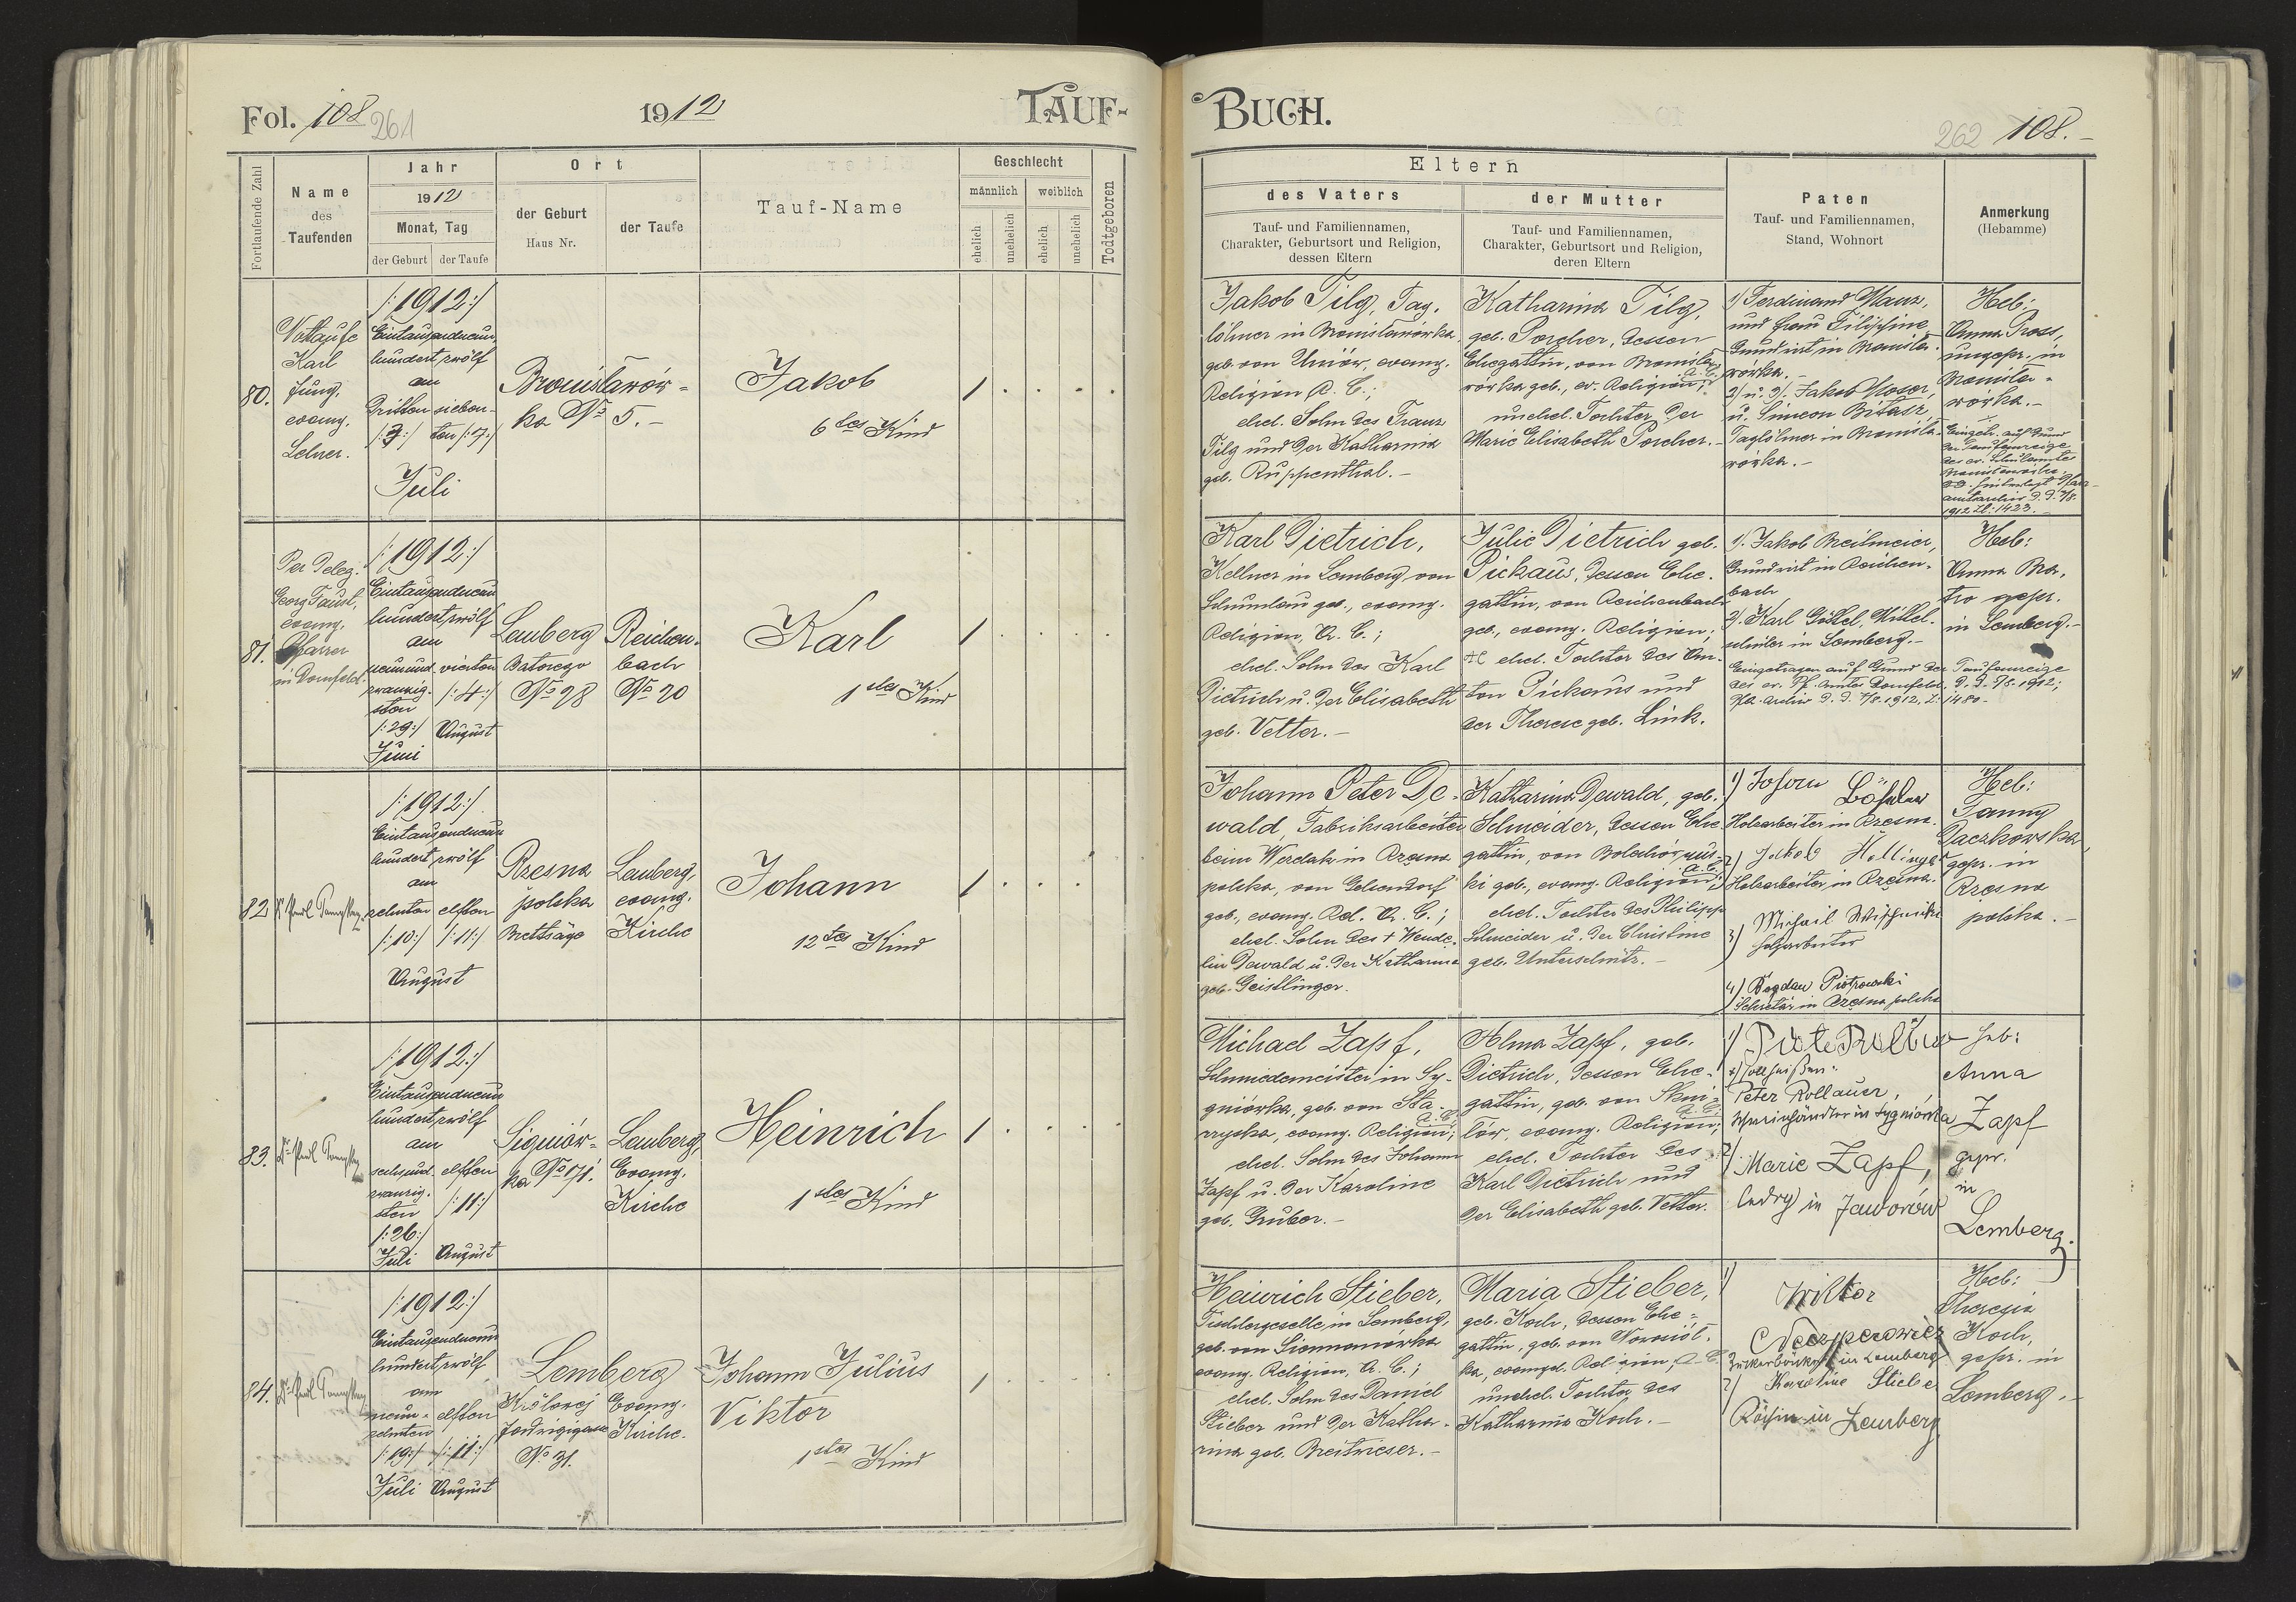 Fol. 108
261
1912
TAUF-
Fortlaufende Zahl
Name
des
Taufenden
Jahr
1912
Monat, Tag
der Geburt
der Taufe
Ort
der Geburt
Haus Nr.
der Taufe
Tauf-Name
Geschlecht
männlich
weiblich
ehelich
unehelich
ehelich
unehelich
Todtgeboren
80.
Nottaufe
Karl
Jung,
evang.
Lehrer.
/:1912:/
Eintausendneun
hundertzwölf
am
dritten
/:3:/
sieben-
ten /:7:/
Juli
Bronisławów-
ka No 5.-
Jakob
6tes Kind
1
81.
Per Deleg.
Georg Faust,
evang.
Pfarrer
in Dornfeld.
/:1912:/
Eintausendneun
hundertzwölf
am
neunund
zwanzig-
sten
/:29:/
Juni
vierten
/:4:/
August
Lemberg
Batorego
No 28
Reichen-
bach
No 20
Karl
1tes Kind
1
82
/:1912:/
Eintausendneun
hundertzwölf
am
zehnten
/:10:/
elften
/:11:/
August
Rzesna
polska
Brettsäge
Lemberg,
evang.
Kirche
Johann
12tes Kind
1
83.
/:1912:/
Eintausendneun
hundertzwölf
am
sechsund
zwanzig-
sten
/:26:/
Juli
elften
/:11:/
August
Signiów-
ka No 171.
Lemberg,
Evang.
Kirche
Heinrich
1stes Kind
1
84.
/:1912:/
Eintausendneun
hundertzwölf
am
neun-
zehnten
/:19:/
Juli
elften
/:11:/
August
Lemberg
Królowej
No 31.
Evang.
Kirche.
Johann Julius
Viktor
1stes Kind
1
BUCH.
262
108.-
Eltern
des Vaters
Tauf- und Familiennamen,
Charakter, Geburtsort und Religion,
dessen Eltern
der Mutter
Tauf- und Familiennamen,
Charakter, Geburtsort und Religion,
deren Eltern
Paten
Tauf- und Familiennamen,
Stand, Wohnort
Anmerkung
(Hebamme)
Jakob Tilg, Tag-
löhner in Bronisławówka,
geb. von Uniów, evang.
Religion A. C.;
ehel. Sohn des Franz
Tilg und der Katharina
geb. Ruppenthal.-
Katharina Tilg,
geb. Porcher, dessen
Ehegattin, von Bronisła-
wówka geb., ev. Religion A. C.;
unehel. Tochter der
Marie Elisabeth Porcher.-
1/ Ferdinand Manz,
und Frau Filippine,
Grundwirt in Bronisła-
wówka.-
2/ u. 3/. Jakob Moser,
u. Simeon Bitasz,
Taglöhner in Bronisła-
wówka.-
Heb:
Anna Pross,
ungepr. in
Bronisła-
wówka.-
Eingetr. auf Grund
der Taufanzeige
1912 Zl: 1423.-
Karl Dietrich,
Kellner in Lemberg von
geb., evang.
Religion, A. C.;
ehel. Sohn des Karl
Dietrich u. der Elisabeth
geb. Vetter.-
Julie Dietrich geb.
Pickaus, dessen Ehe-
gattin, von Reichenbach
geb., evang. Religion;
ehel. Tochter des An-
ton Pickaus und
der Therese geb. Link.
1/. Jakob Breitmeier,
Grundwirt in Reichen-
bach
2/. Karl Göttel, Mittel-
schüler in Lemberg.-
Eingetragen auf Grund der Taufanzeige
des ev. Pf. Amtes Dornfeld,
Heb:
Anna
gepr.
in Lemberg.-
Johann Peter De-
wald, Fabriksarbeiter
beim Werdak in Rzesna
polska, von Gelsendorf
geb., evang. Rel. A. C.;
ehel. Sohn des + Wende-
lin Dewald u. der Katharina
geb. Geistlinger.
Katharina Dewald, geb.
Schneider, dessen Ehe-
gattin, von
geb., evang. Religion A. C.;
ehel. Tochter des Philipp
Schneider u. der Christine
geb. Unterschütz.-
1/ Johann
Holzarbeiter in Rzesna.
2/ Jakob Hollinger
Holzarbeiter in Rzesna.
3/ Michail
Holzarbeiter
4/ Bogdan Piotrowski
Sekretär in Rzesna polska
Heb:
Fanny
Paczkowska,
gepr. in
Rzesna
polska.-
Michael Zapf,
Schmiedemeister in Sy-
gniówka, geb. von Sta-
evang. Religion A. C.;
ehel. Sohn des Johann
Zapf u. der Karoline
geb. Gruber.-
Alma Zapf, geb.
Dietrich, dessen Ehe-
gattin, geb. von Skni-
łów, evang. Religion A. C.;
ehel. Tochter des
Karl Dietrich und
der Elisabeth geb. Vetter.
1/
Peter Rollauer,
in Sygniówka
2/ Marie Zapf,
ledig in Jaworów
Heb:
Anna
Zapf
gepr.
in
Lemberg.
Heinrich Stieber,
Tischlergeselle in Lemberg,
geb. von Siemianówka
evang. Religion, A. C.;
ehel. Sohn des Daniel
Stieber und der Katha-
rina geb. Breitwieser.-
Maria Stieber,
geb. Koch, dessen Ehe-
gattin, geb. von Nowosiół-
ka, evangel. Religion, A. C.
unehel. Tochter des
Katharina Koch.-
1/ Wiktor
Nieczperowicz
Zuckerbäcker in Lemberg
2/ Karoline Stieber
Köchin in Lemberg
Heb:
Theresia
Koch,
gepr. in
Lemberg.-